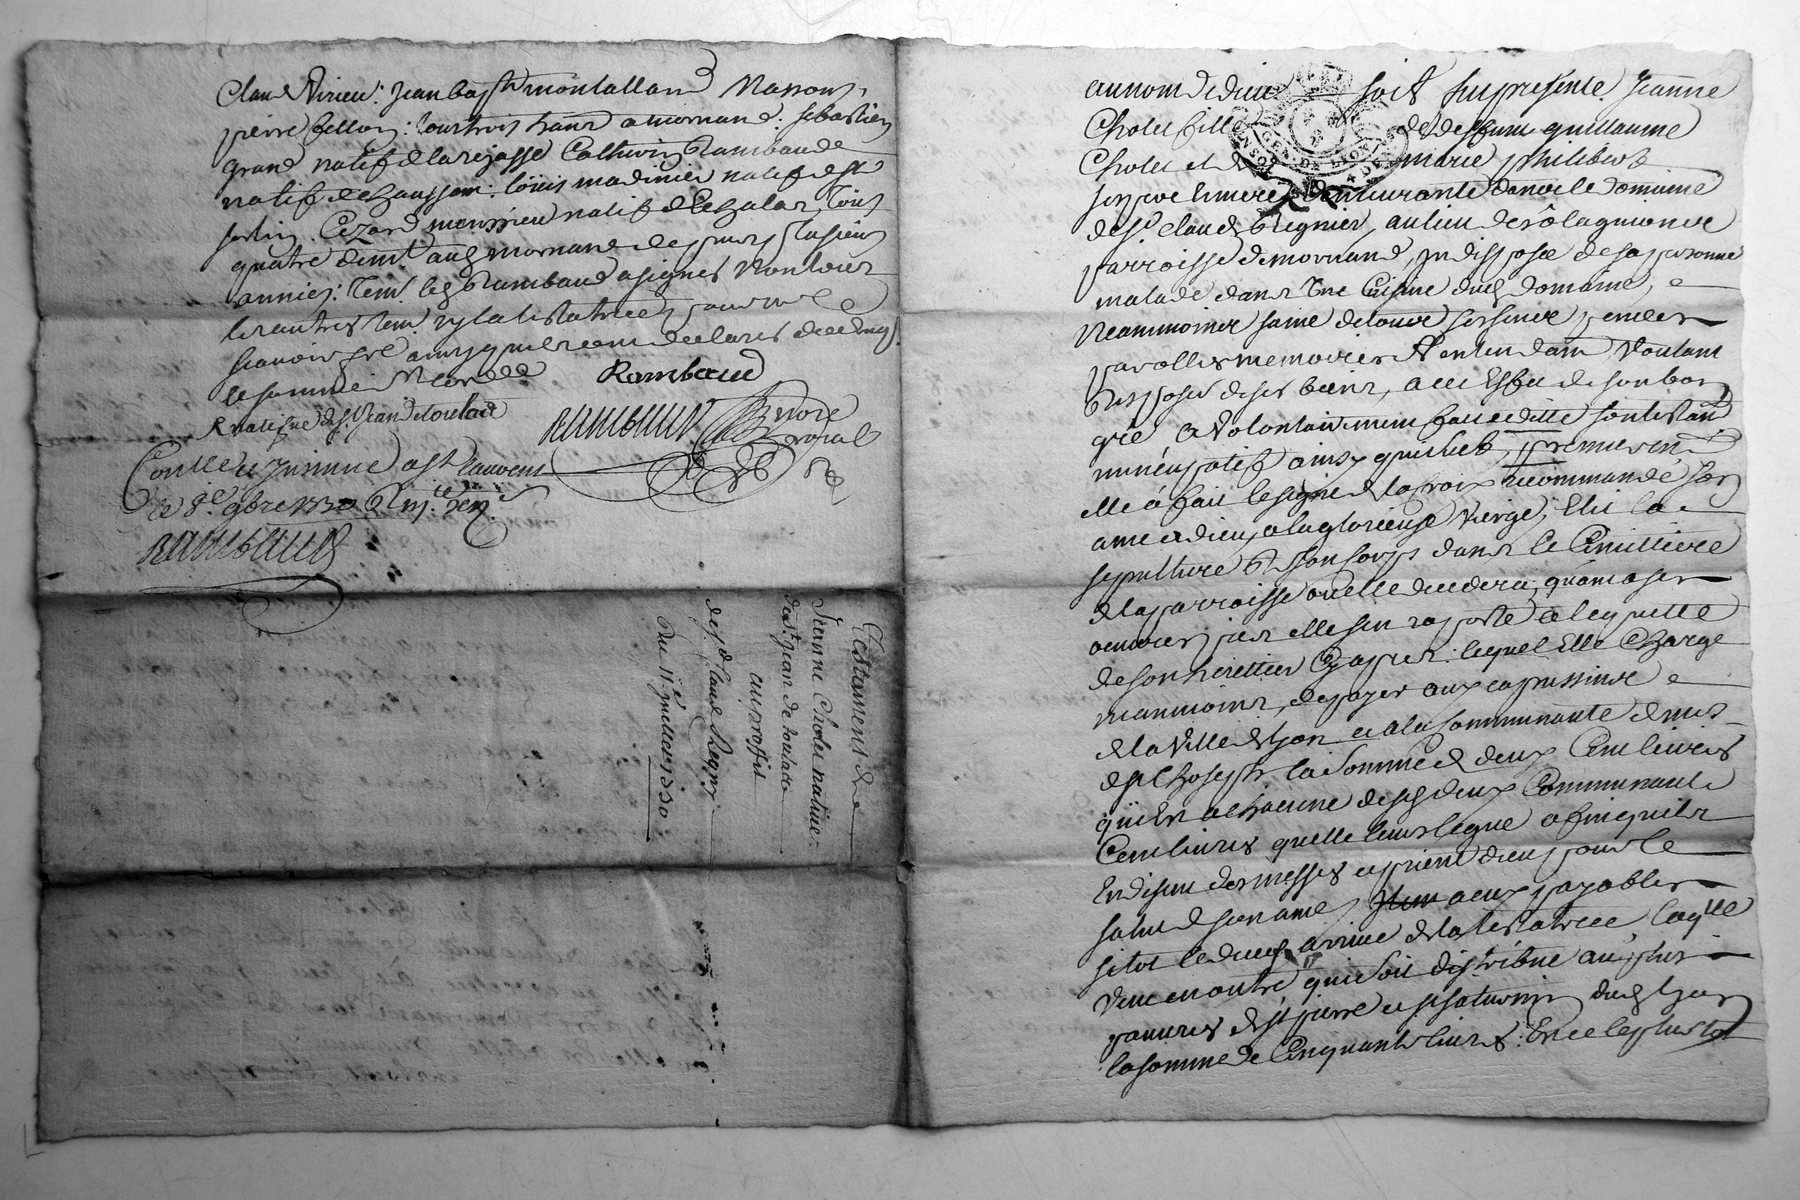 Claude Virieu: Jean bapt montalland Massons,
pierre fellon: tous trois hants a mornand: sebastien
grand natif de larejasse Catherin Rambaud
natif de chaussan: Loüis madinier natif de st
sorlin Cezard monssieu natif de Tous
quatre demt aud mornand depuis plusieurs
années: led Rambaud a signés non les
autres ny la testatrice pour ne
scavoir ainsy quils ont declarés de ce enquis
Rambaud
& natifve de st Jean de toulade
Rambaud royal
Controllé et Insinué a st Laurens
le 8e 9bre 1730
Rambaud
Testament de
Jeanne Cholet native
de st Jean de toulade
au proffit
de sr Claude Regnier
du 11e Juillet 1730
au nom de dieu soit fut presente Jeanne
Cholet fille de deffunt guillaume
Cholet et de marie philibert
ses pere et mere demeurante dans le domaine
de sr claude Regnier au lieu de rôlagnion
parroisse de mornand, indisposée de sa personne
malade dans Une Cuisine dud domaine,
Neammoins saine de tous ses sens
parolles memoires & entendam Voulant
Disposer de ses biens, a cet Effet de son bon
gré & volontairement fait et ditte son testam
nuncupatif ainsy que suit, premierem
elle a fait le signe de la croix recommandé son
ame a dieu, a la glorieuse Vierge, Elit la
sepulture de son corps dans le Cimittiere
de la parroisse ou elle decedera, quant a ses
œuvres pies elle s'en raporte a la
de son herittier Cy apres: lequel Elle Charge
neanmoins, de payer aux capussins
de la Ville de Lyon et a la Communauté de
de st Joseph la somme de deux Cent livres
qui Est a chacune desd deux Communauté
Cent livres quelle leurs legue afin quils
En disent des messes et prient dieu pour le
salut de son ame, a eux payables
sitot le deced arrivé de la testatrice laqlle
Veut en outre quil soit distribué aux plus
pauvres de st pierre et st saturnin dud Lyon
la somme de Cinquante livres: Et ce le plustot